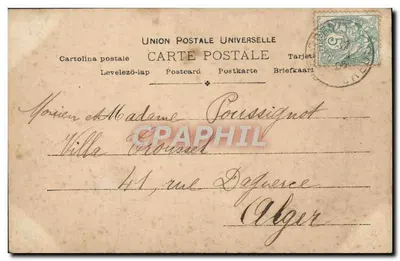 UNION POSTALE UNIVERSELLE
CARTE POSTALE
Cartolina postale
Tarjet
Levelező-lap Postcard Postkarte Briefkaart
5
Monsieur et Madame Poussignot
CPARAMA
Villa Trousset
41, rue Daguerre
Alger